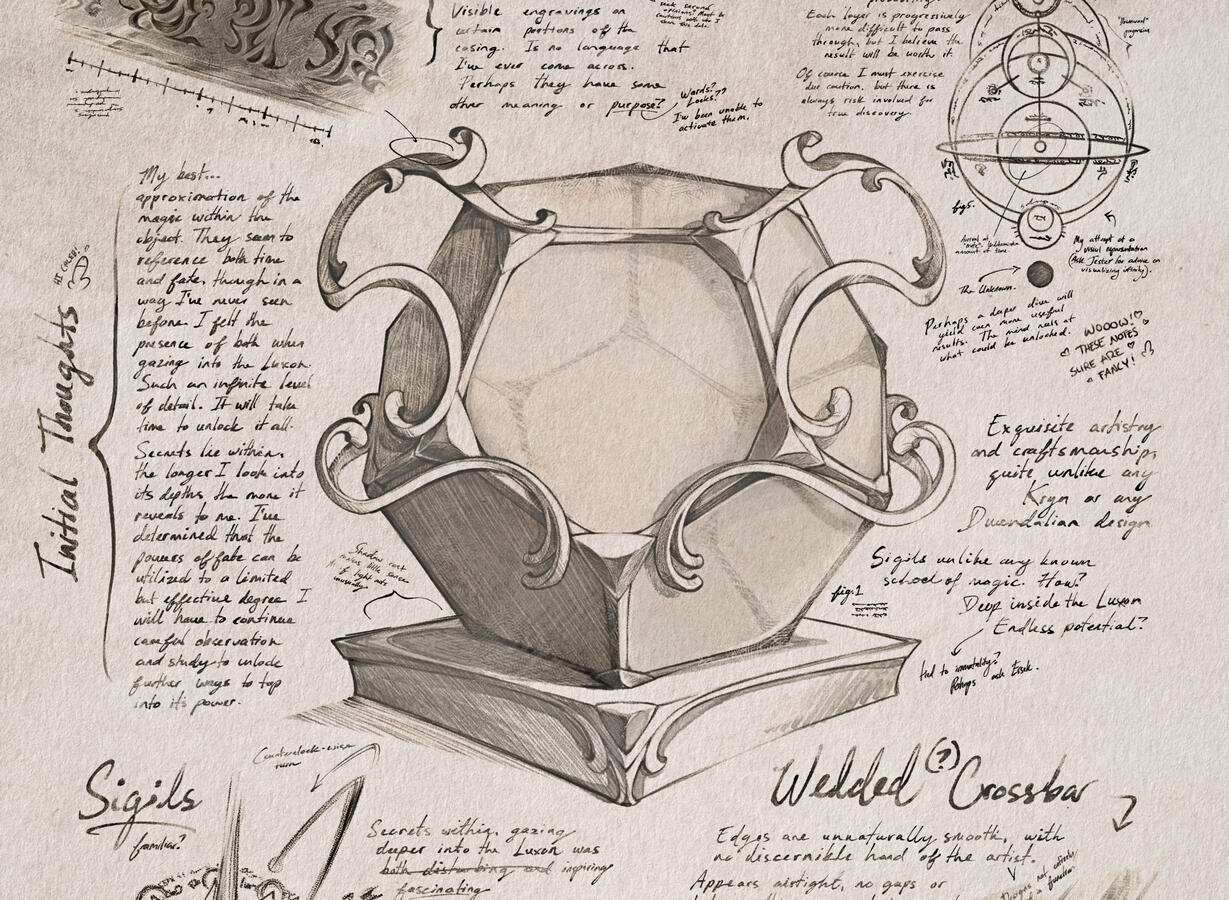 Visible engravings on
certain portions of the
casing. Is no language that
I've ever come across.
Perhaps they have some
other meaning or purpose?
Words??
Locks?
I've been unable to
activate them.
Each layer is progressively
more difficult to pass
through, but I believe the
result will be worth it.
Of course I must exercise
due caution, but there is
always risk involved for
true discovery.
fig5.
My attempt at a
visual representation
(Ask Jester for advice on
visualizing infinity).
The Unknown.
Perhaps a deeper dive will
yield even more useful
results. The mind reels at
what could be unlocked.
WOOOW!
THESE NOTES
SURE ARE
FANCY!
Initial Thoughts
HI CALEB!
My best...
approximation of the
magic within the
object. They seem to
reference both time
and fate, though in a
way I've never seen
before. I felt the
presence of both when
gazing into the Luxon.
Such an infinite level
of detail. It will take
time to unlock it all.
Secrets lie within,
the longer I look into
its depths the more it
reveals to me. I've
determined that the
powers of fate can be
utilized to a limited
but effective degree I
will have to continue
careful observation
and study to unlock
further ways to tap
into it's power.
Exquisite artistry
and craftsmanship,
quite unlike any
Kryn or any
Dwendalian design
Sigils unlike any known
school of magic. How?
Deep inside the Luxon
Endless potential?
tied to immortality?
Perhaps ask Essek.
fig.1
Shadow cast
makes little sense
Counterclock-wise
turn
Sigils
familiar?
Secrets within, gazing
deeper into the Luxon was
both disturbing and inspiring
fascinating
Wedded (?) Crossbar
Edges are unnaturally smooth, with
no discernible hand of the artist.
Appears airtight, no gaps or